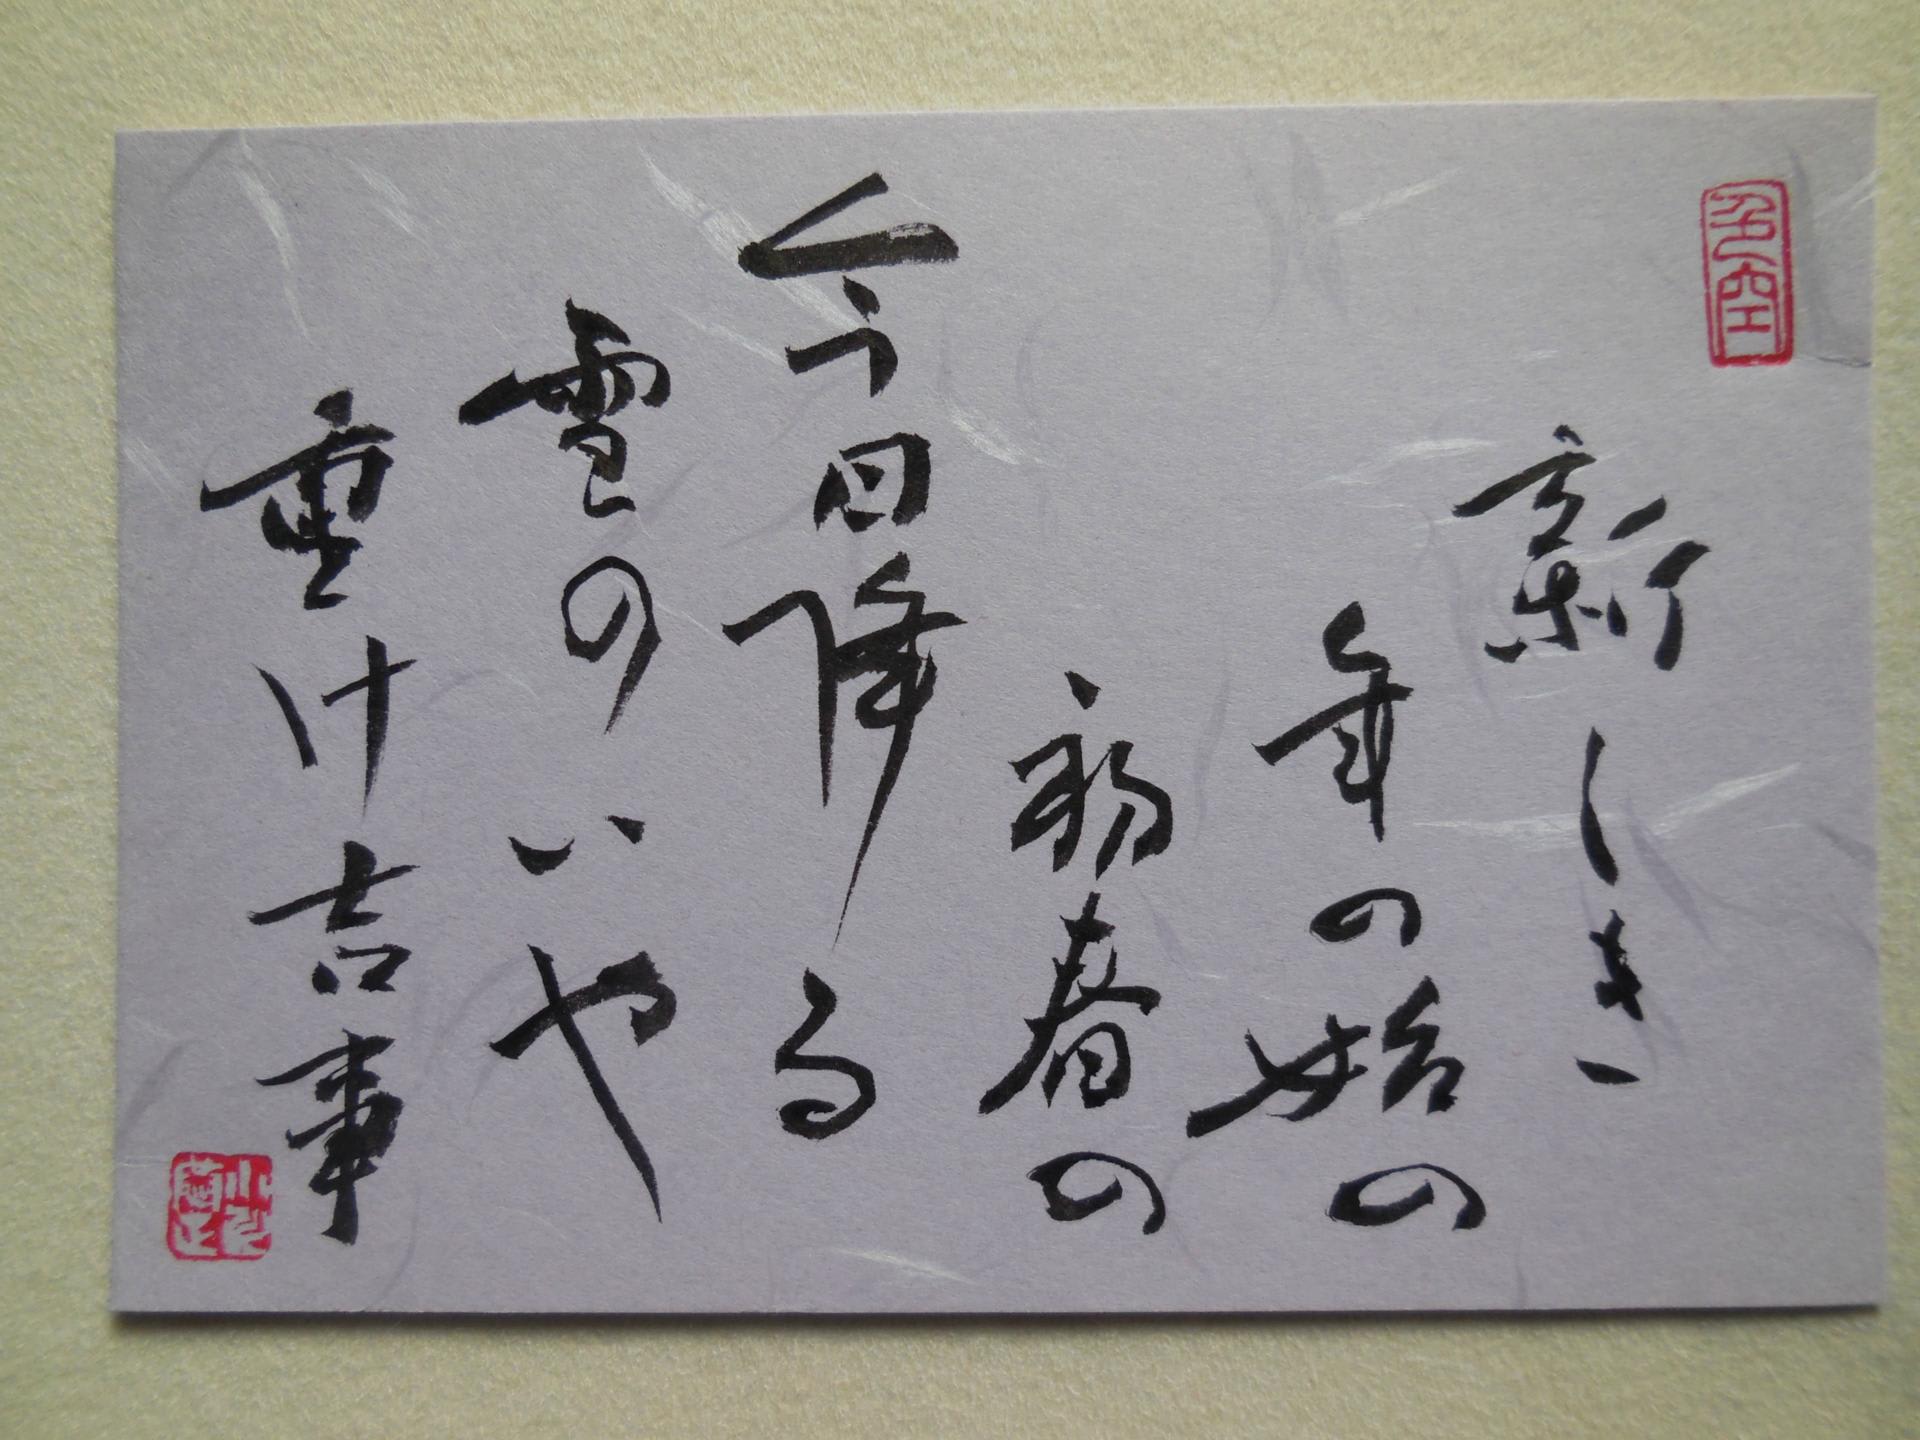 色空
新しき
年の始の
初春の
今日降る
雪のいや
重け吉事